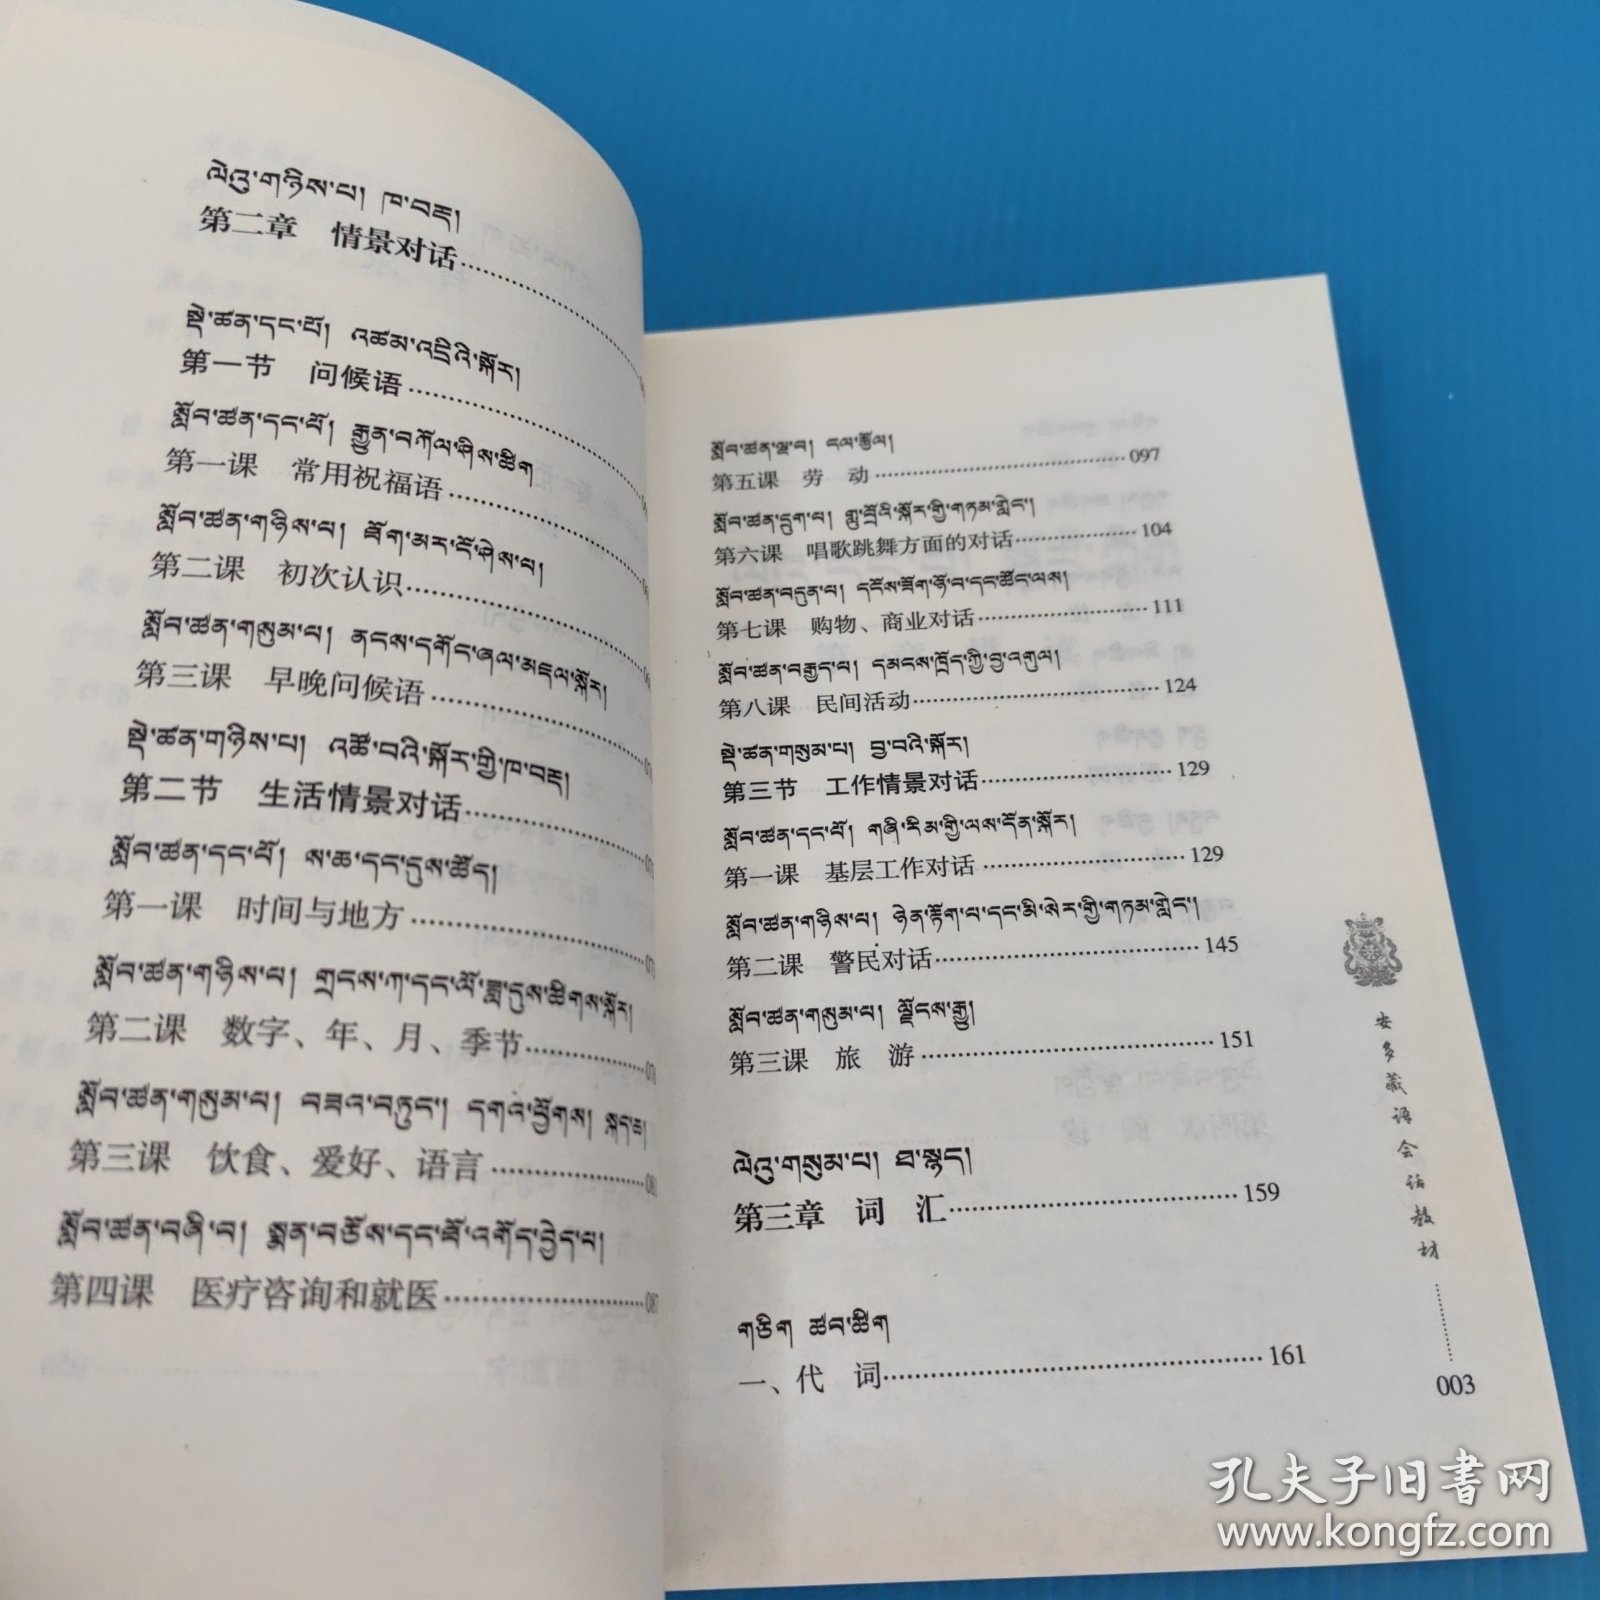 ལེའུ་གཉིས་པ། ཁ་བརྡ།
第二章 情景对话
སྡེ་ཚན་དང་པོ། འཚམ་འདྲིའི་སྐོར།
第一节 问候语
སློབ་ཚན་དང་པོ། རྒྱུན་བཀོལ་ཤིས་ཚིག
第一课 常用祝福语
སློབ་ཚན་གཉིས་པ། ཐོག་མར་ངོ་ཤེས་པ།
第二课 初次认识
སློབ་ཚན་གསུམ་པ། ནངས་དགོང་ཞལ་མཇལ་སྐོར།
第三课 早晚问候语
སྡེ་ཚན་གཉིས་པ། འཚོ་བའི་སྐོར་གྱི་ཁ་བརྡ།
第二节 生活情景对话
སློབ་ཚན་དང་པོ། ས་ཆ་དང་དུས་ཚོད།
第一课 时间与地方
སློབ་ཚན་གཉིས་པ། གྲངས་ཀ་དང་ལོ་ཟླ་དུས་ཚིགས་སྐོར།
第二课 数字、年、月、季节
སློབ་ཚན་གསུམ་པ། བཟའ་བཏུང་། དགའ་ཕྱོགས། སྐད་ཆ།
第三课 饮食、爱好、语言 081
སློབ་ཚན་བཞི་བ། སྨན་བཅོས་དང་ཐོ་འགོད་བྱེད་པ།
第四课 医疗咨询和就医 087
སློབ་ཚན་ལྔ་བ། ངལ་རྩོལ།
第五课 劳 动 097
སློབ་ཚན་དྲུག་པ། གླུ་བྲོའི་སྐོར་གྱི་གཏམ་གླེང་།
第六课 唱歌跳舞方面的对话 104
སློབ་ཚན་བདུན་པ། དངོས་ཟོག་ཉོ་བ་དང་ཚོང་ལས།
第七课 购物、商业对话 111
སློབ་ཚན་བརྒྱད་པ། དམངས་ཁྲོད་ཀྱི་བྱ་འགུལ།
第八课 民间活动 124
སྡེ་ཚན་གསུམ་པ། བྱ་བའི་སྐོར།
第三节 工作情景对话 129
སློབ་ཚན་དང་པོ། གཞི་རིམ་གྱི་ལས་དོན་སྐོར།
第一课 基层工作对话 129
སློབ་ཚན་གཉིས་པ། ཉེན་རྟོག་པ་དང་མི་སེར་གྱི་གཏམ་གླེང་།
第二课 警民对话 145
སློབ་ཚན་གསུམ་པ། ལྗོངས་རྒྱུ།
第三课 旅 游 151
ལེའུ་གསུམ་པ། ཐ་སྙད།
第三章 词 汇 159
གཅིག ཚབ་ཚིག
一、代 词 161
安多藏语会话教材
003
孔夫子旧书网
www.kongfz.com